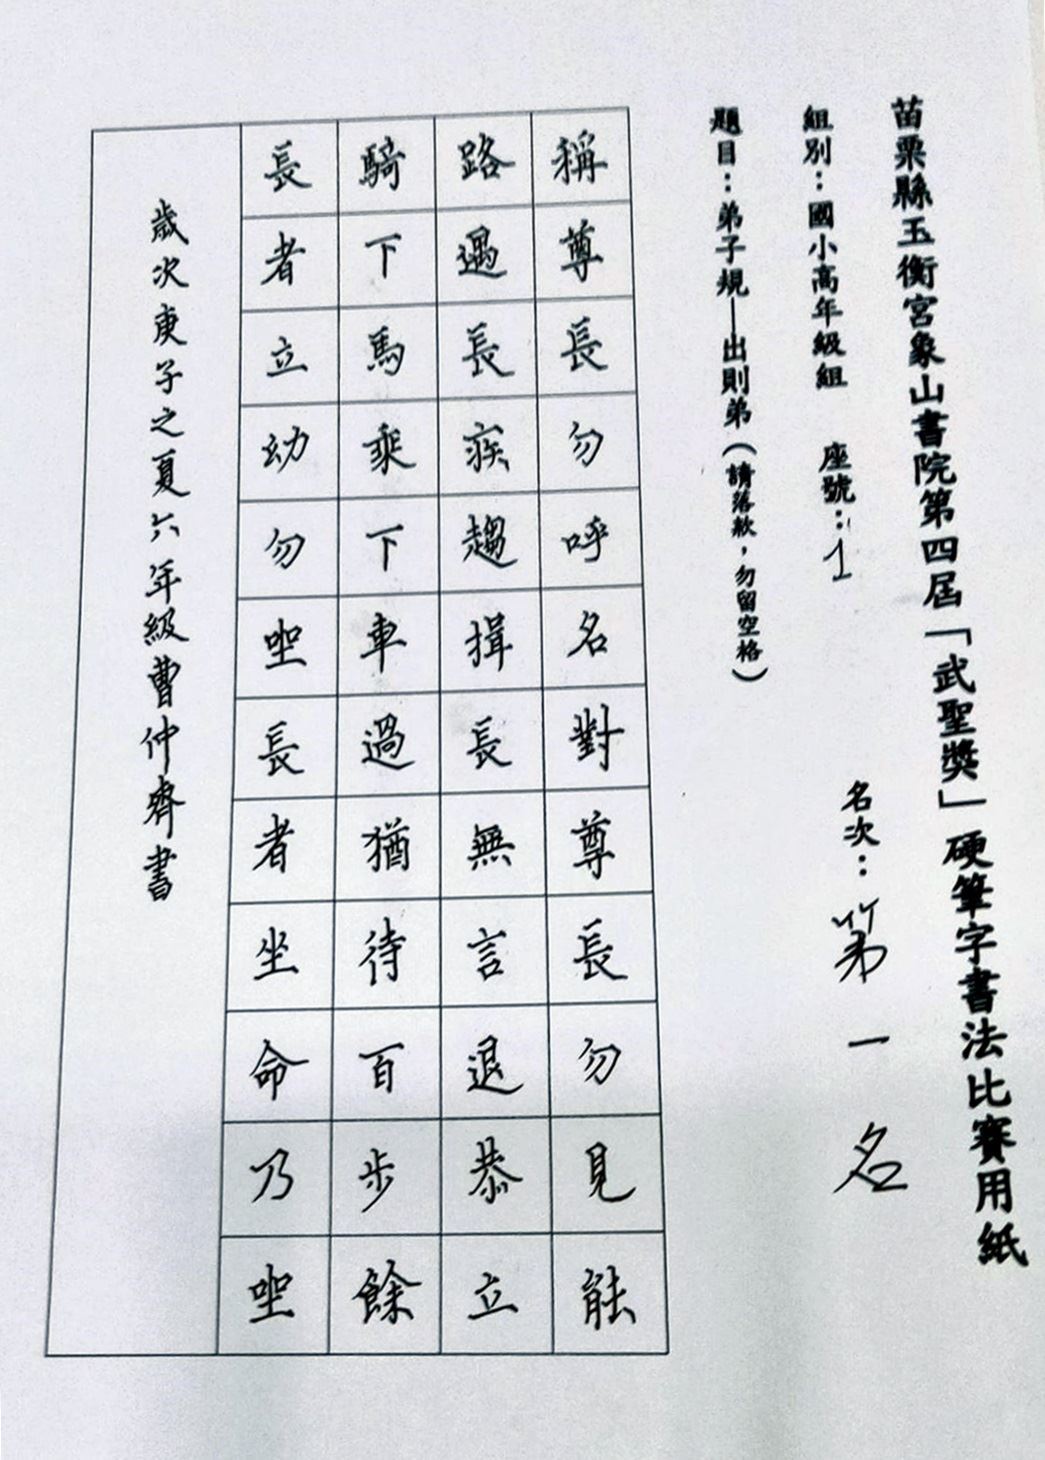 苗栗縣玉衡宮象山書院第四屆「武聖獎」硬筆字書法比賽用紙
組別：國小高年級組 座號：1 名次：第一名
題目：弟子規—出則弟（請落款，勿留空格）
稱尊長勿呼名對尊長勿見能
路遇長疾趨揖長無言退恭立
騎下馬乘下車過猶待百步餘
長者立幼勿坐長者坐命乃坐
歲次庚子之夏六年級曹仲齊書